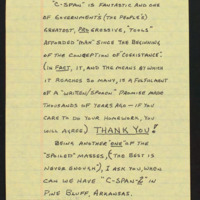 "C-SPAN" IS FANTASTIC AND ONE
OF GOVERNMENT'S (THE PEOPLE'S)
GREATEST, PROGRESSIVE, "TOOLS"
AFFORDED "MAN" SINCE THE BEGINNING
OF THE CONCEPTION OF COEXISTANCE.
(IN FACT, IT, AND THE MEANS BY WHICH
IT REACHES SO MANY, IS A FULFILMENT
OF A "WRITTEN/SPOKEN" PROMISE MADE
THOUSANDS OF YEARS AGO - IF YOU
CARE TO DO YOUR HOMEWORK, YOU
WILL AGREE) THANK YOU!
BEING ANOTHER "ONE" OF THE
"SPOILED" MASSES, (THE BEST IS
NEVER ENOUGH), I ASK YOU, WHEN
CAN WE HAVE "C-SPAN-2" IN
PINE BLUFF, ARKANSAS.